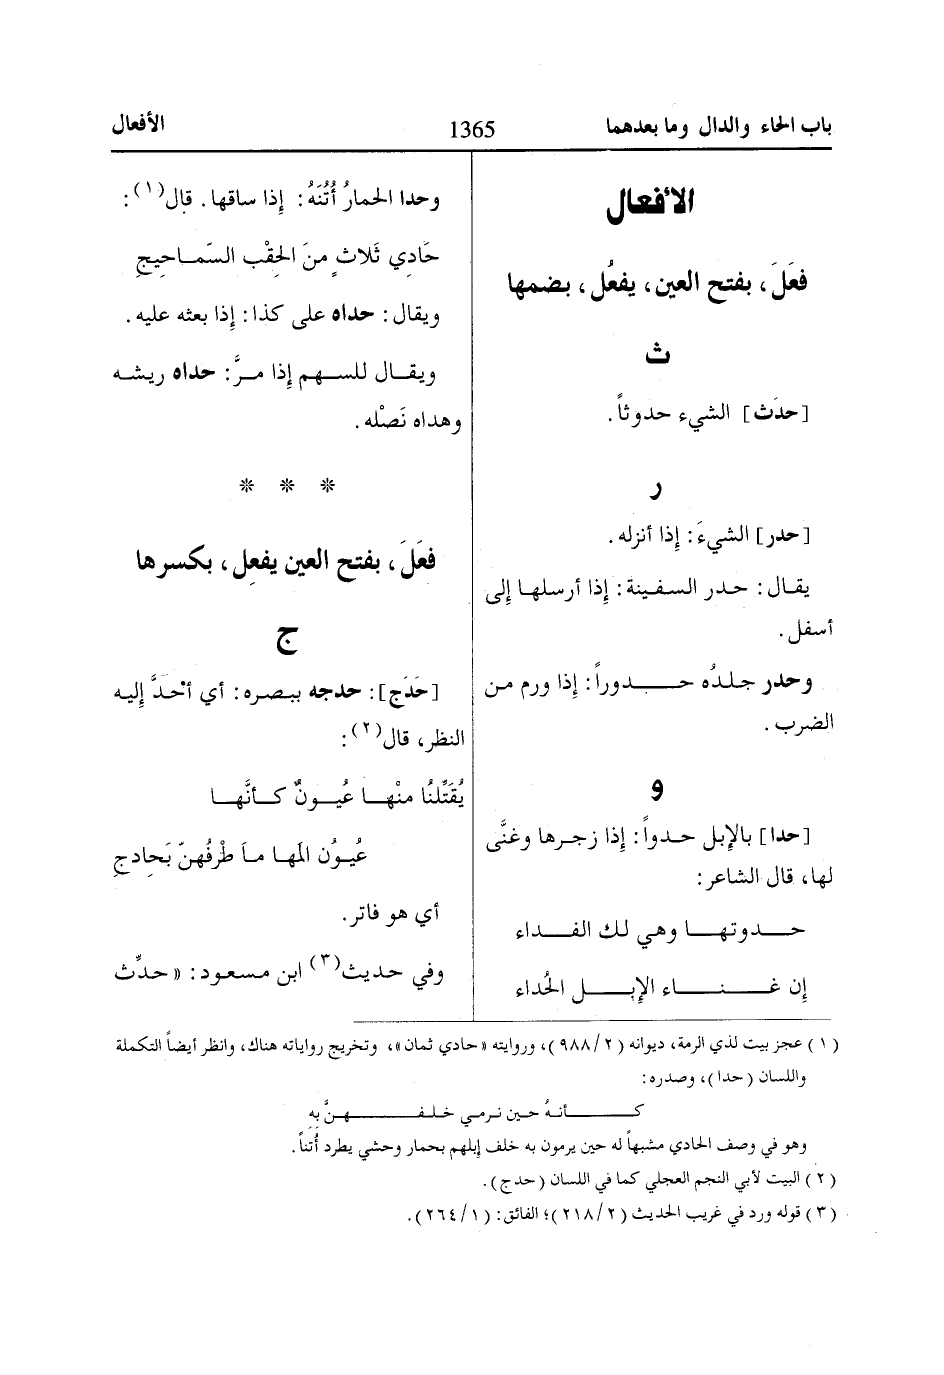 باب الحاء والدال وما بعدهما
1365
الأفعال
الأفعال
فَعَلَ، بفتح العين، يفعُل، بضمها
ث
[حدَث] الشيء حدوثاً.
ر
[حدر] الشيءَ: إذا أنزله.
يقال: حدر السفينة: إذا أرسلها إلى
أسفل.
وحدر جلدُه حدوراً: إذا ورم من
الضرب.
و
[حدا] بالإبل حدواً: إذا زجرها وغنَّى
لها، قال الشاعر:
حدوتها وهي لك الفداء
إن غناء الإبل الحُداء
وحدا الحمارُ أُتُنَهُ: إذا ساقها. قال(١):
حَادِي ثَلاثٍ منَ الحِقْبِ السَّماحيجِ
ويقال: حداه على كذا: إذا بعثه عليه.
ويقال للسهم إذا مرَّ: حداه ريشه
وهداه نَصْله.
* * *
فعَلَ، بفتح العين يفعِل، بكسرها
ج
[حَدَج]: حدجه ببصره: أي أحَدَّ إليه
النظر، قال(٢):
يُقَتِّلنُا منْها عُيونٌ كأنَّها
عُيوُن المَها ماَ طرْفُهنّ بَحادجِ
أي هو فاتر.
وفي حديث(٣) ابن مسعود: «حدِّث
(١) عجز بيت لذي الرمة، ديوانه (٢/ ٩٨٨)، وروايته «حادي ثمان»، وتخريج رواياته هناك، وانظر أيضاً التكملة
واللسان (حدا)، وصدره:
كأنهُ حين نرمي خلفهنَّ بِهِ
وهو في وصف الحادي مشبهاً له حين يرمون به خلف إبلهم بحمار وحشي يطرد أُتناً.
(٢) البيت لأبي النجم العجلي كما في اللسان (حدج).
(٣) قوله ورد في غريب الحديث (٢/ ٢١٨)؛ الفائق: (١/ ٢٦٤).